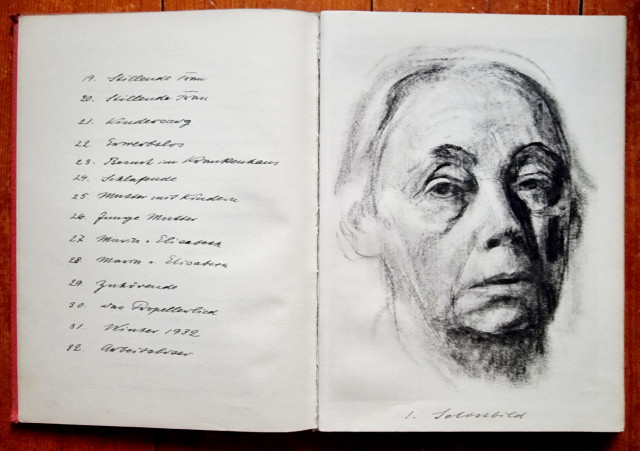 19. Stillende Frau
20. Stillende Frau
21. Kindersarg
22. Erwerbslos
23. Besuch im Krankenhaus
24. Schlafende
25. Mutter mit Kindern
26. Junge Mutter
27. Maria u. Elisabeth
28. Maria u. Elisabeth
29. Zuhörende
30. Das Propellerlied
31. Winter 1932
32. Arbeitsloser
1. Selbstbild